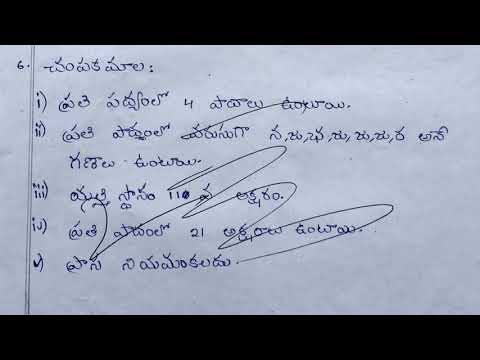 6. చంపకమాల:
i) ప్రతి పద్యంలో 4 పాదాలు ఉంటాయి.
ii) ప్రతి పాదంలో వరుసుగా న,జ,భ,జ,జ,జ,ర అనే
గణాలు ఉంటాయి.
iii) యతి స్థానం 11వ అక్షరం.
iv) ప్రతి పాదంలో 21 అక్షరాలు ఉంటాయి.
v) ప్రాస నియమంకలదు.